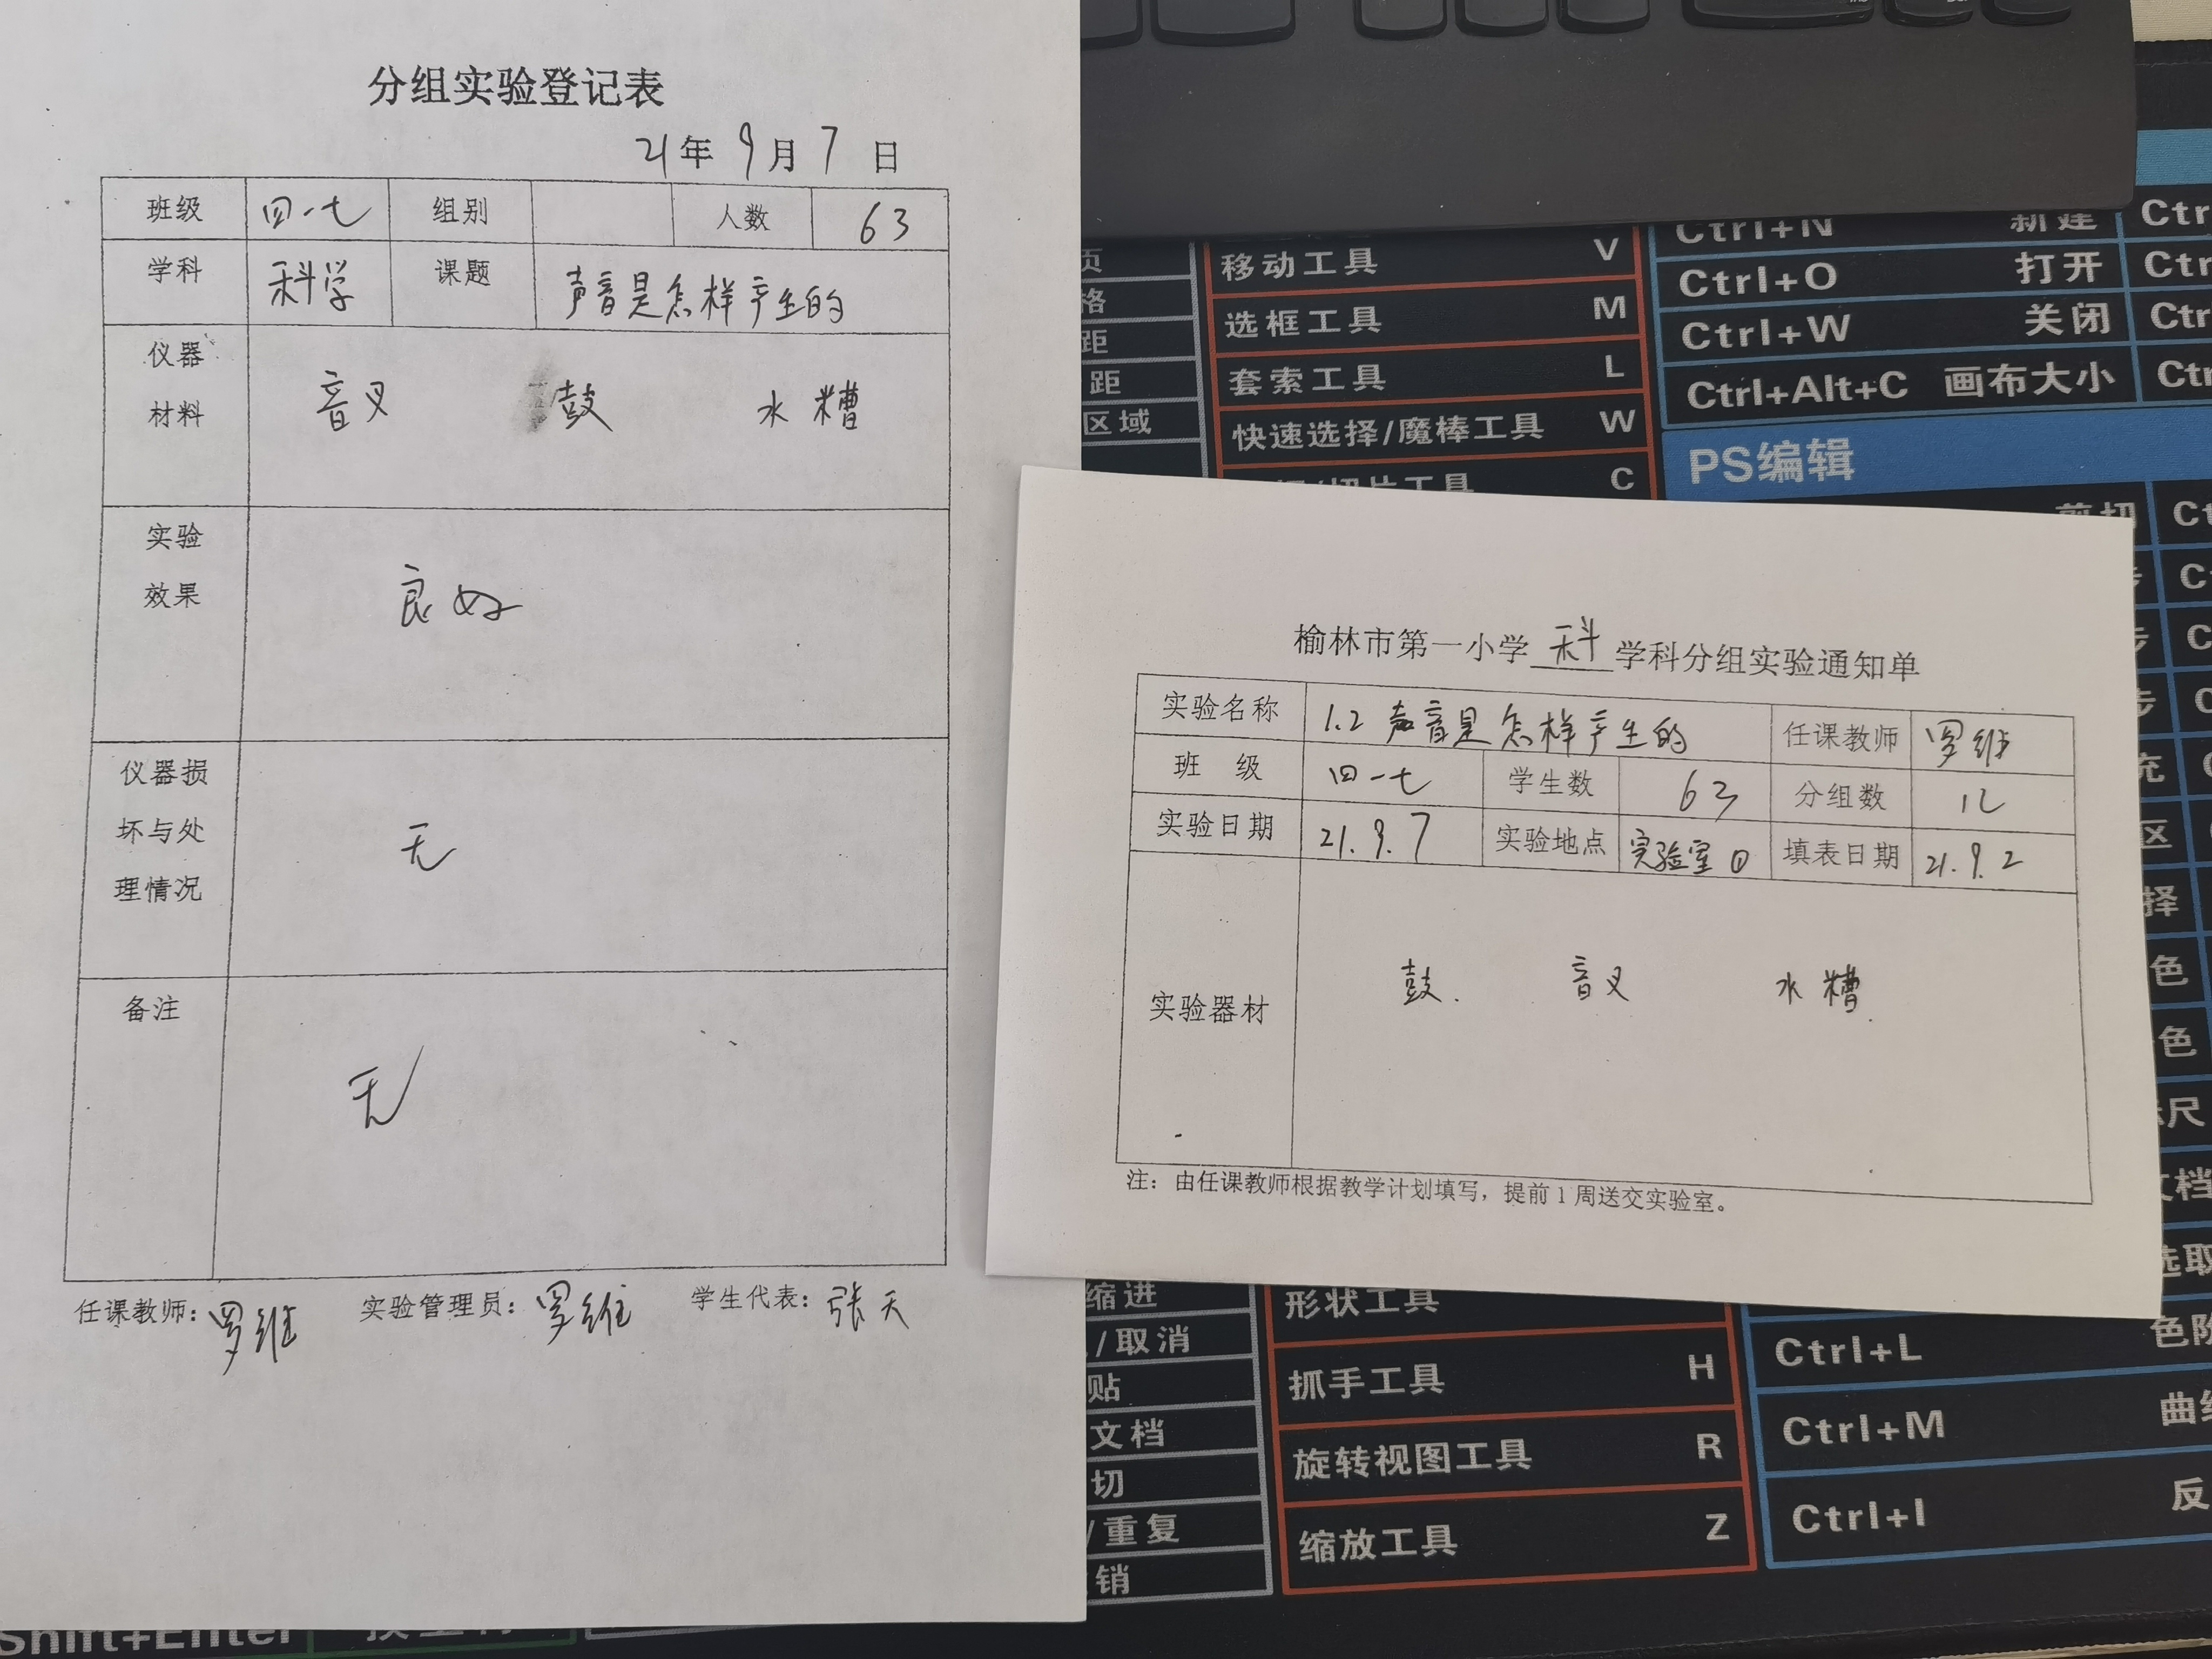 分组实验登记表
21年 9月 7 日
班级 四·七 组别 人数 63
学科 科学 课题 声音是怎样产生的
仪器
材料
音叉 鼓 水槽
实验
效果
良好
仪器损
坏与处
理情况
无
备注
无
任课教师：罗维 实验管理员：罗维 学生代表：张天
榆林市第一小学 科 学科分组实验通知单
实验名称 1.2 声音是怎样产生的 任课教师 罗维
班 级 四·七 学生数 63 分组数 12
实验日期 21.9.7 实验地点 实验室 填表日期 21.9.2
实验器材 鼓. 音叉 水槽.
注：由任课教师根据教学计划填写，提前1周送交实验室。
页
格
距
距
区域
移动工具 V
选框工具 M
套索工具 L
快速选择/魔棒工具 W
C
Ctrl+N 新建 Ctr
Ctrl+O 打开 Ctr
Ctrl+W 关闭 Ctr
Ctrl+Alt+C 画布大小 Ctr
PS编辑
剪切 Ct
充
区
择
色
色
尺
文档
选取
色阶
缩进
/取消
贴
文档
切
/重复
销
形状工具
抓手工具 H
旋转视图工具 R
缩放工具 Z
Ctrl+L
Ctrl+M 曲线
Ctrl+I 反
Shift+Enter